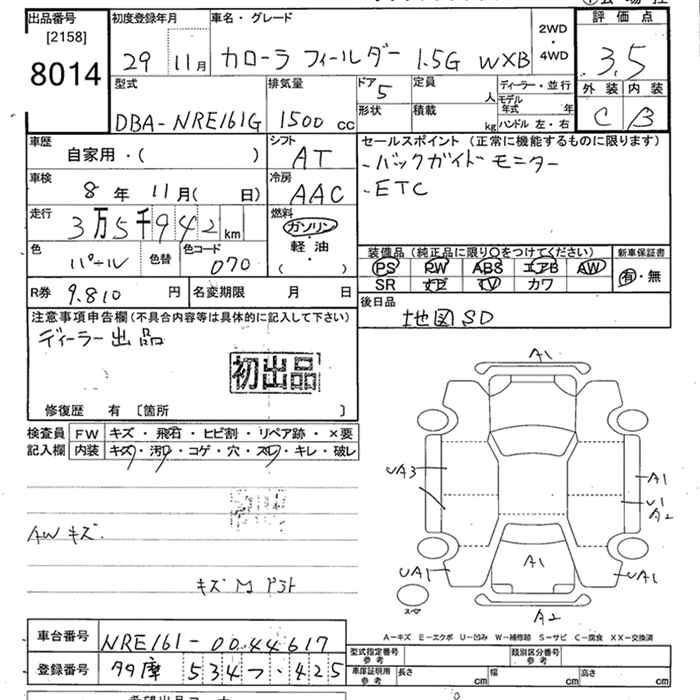 出品番号 初度登録年月 車名・グレード 評価点
[2158]
8014
29 11月 カローラ フィールダー 1.5G WXB 2WD・4WD 3.5
型式 排気量 ドア 定員 ディーラー・並行 外装 内装
DBA-NRE161G 1500 cc 5 人 モデル年式 年 C B
形状 積載 kg ハンドル 左・右
車歴 シフト セールスポイント(正常に機能するものに限ります)
自家用・( ) AT ・バックガイドモニター
車検 冷房 ・ETC
8年 11月( 日) AAC
走行 3万5千942km 燃料 ガソリン・軽油・( )
色 パール 色替 色コード 070
装備品(純正品に限り〇をつけてください) 新車保証書
PS PW ABS エアB AW 有・無
SR ナビ TV カワ
R券 9.810円 名変期限 月 日 後日品
地図SD
注意事項申告欄(不具合内容等は具体的に記入して下さい)
ディーラー出品
初出品
修復歴 有 [箇所 ]
検査員 FW キズ・飛石・ヒビ割・リペア跡・×要
記入欄 内装 キズ・汚レ・コゲ・穴・スレ・キレ・破レ
AWキズ
A1
UA3 A1
U1
A2
UA1 A1 UA1
スペア
A2
A-キズ E-エクボ U-凹み W-補修跡 S-サビ C-腐食 XX-交換済
車台番号 NRE161-0044617 型式指定番号 参考 類別区分番号 参考
登録番号 534 425 車庫証明用 参考 長さ cm 幅 cm 高さ cm